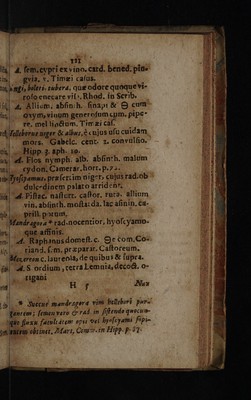 111
A. sem. cypri ex vino. card. bened. pin-
gvia. v. Timæi casus.
ngi, boleti. tubera, quæ odore quoque vi-
roso enecare vis, Rhod. in Scrib.
A. Allium, absinth. sinapi & cum
oxym. vinum generosum cum, pipe-
re. mel linctum. Timæi cas.
Helleborus niger & albus, cujus usu cuidam
mors. Gabelc. cent. 2. convulsio.
Hipp. 5. aph. 10.
A. Flos nymph. alb. absinth. malum
cydon. Camerar. hort. p. 72.
Hyosyamus, præsertim niger. cujus rad. ob
dulcedinem palato arrident.
A. Pistac. nasturt. castor, ruta. allium
vin. absinth. mosta: da. lac asinin. ca-
prill. purum.
Mandragora * rad. nocentior, hyoscyamo-
que affinis.
A. Raphanus domest. c. com. Co-
riand. s. m. præparat. Castoreum.
Mezereon c. laureola, de quibus & supra.
A. Sordium, terra Lemnia, decoct. o-
rigani
H 5 Nux
* Succus mandragora vim hellebori pur-
gantem; semen vero & rad. in sistendo quocun-
que fluxu facultatem opii vel hyoscyami stipi-
antem obtinet. Mart. Comm. in Hipp. p. 27.